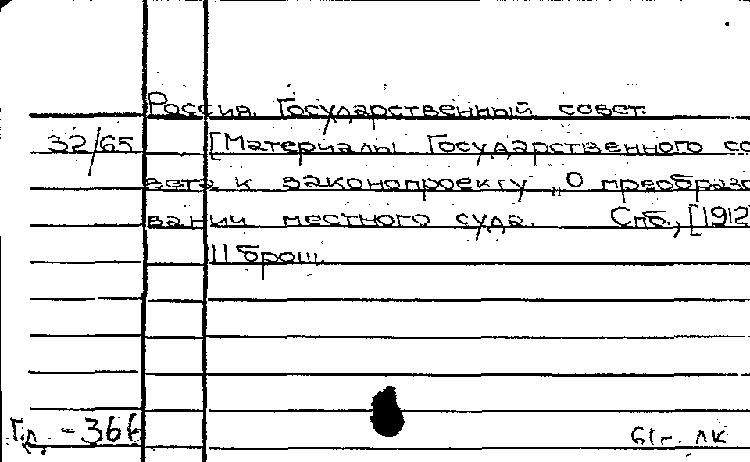 Россия. Государственный совет.
32/65 [Материалы Государственного со
вета к законопроекту „О преобразо
вании местного суда. Спб., [1912
11 брош.
Гл. - 366
61г. ЛК